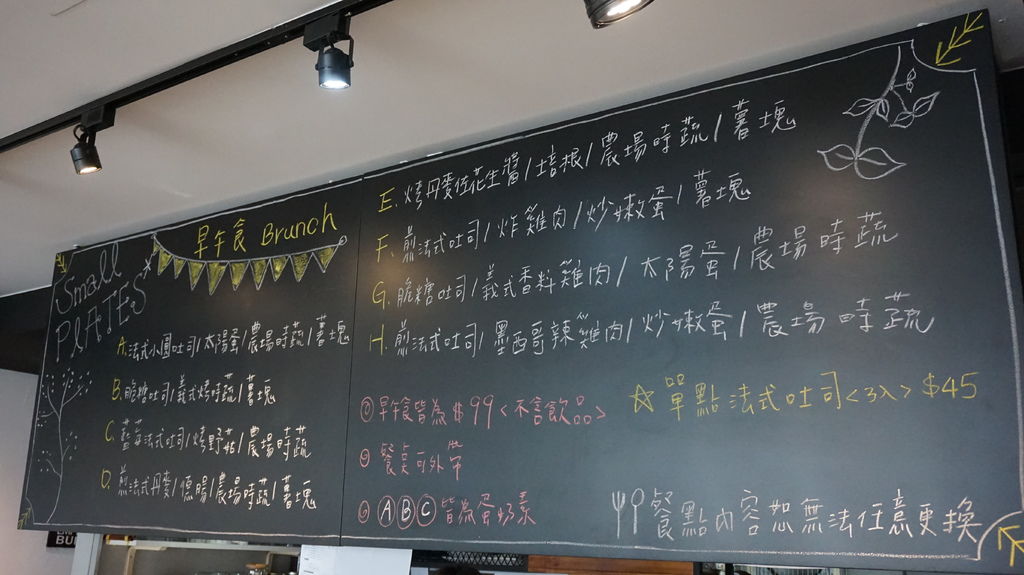 早午食 Brunch
Small
PLATES
A. 法式小圓吐司/太陽蛋/農場時蔬/薯塊
B. 脆糖吐司/義式烤時蔬/薯塊
C. 藍莓法式吐司/烤野菇/農場時蔬
D. 煎法式丹麥/德腸/農場時蔬/薯塊
E. 烤丹麥佐花生醬/培根/農場時蔬/薯塊
F. 煎法式吐司/炸雞肉/炒嫩蛋/薯塊
G. 脆糖吐司/義式香料雞肉/太陽蛋/農場時蔬
H. 煎法式吐司/墨西哥辣雞肉/炒嫩蛋/農場時蔬
早午食皆為$99<不含飲品>
餐桌可外帶
ABC皆為蛋奶素
☆單點法式吐司<3入>$45
餐點內容恕無法任意更換
BU